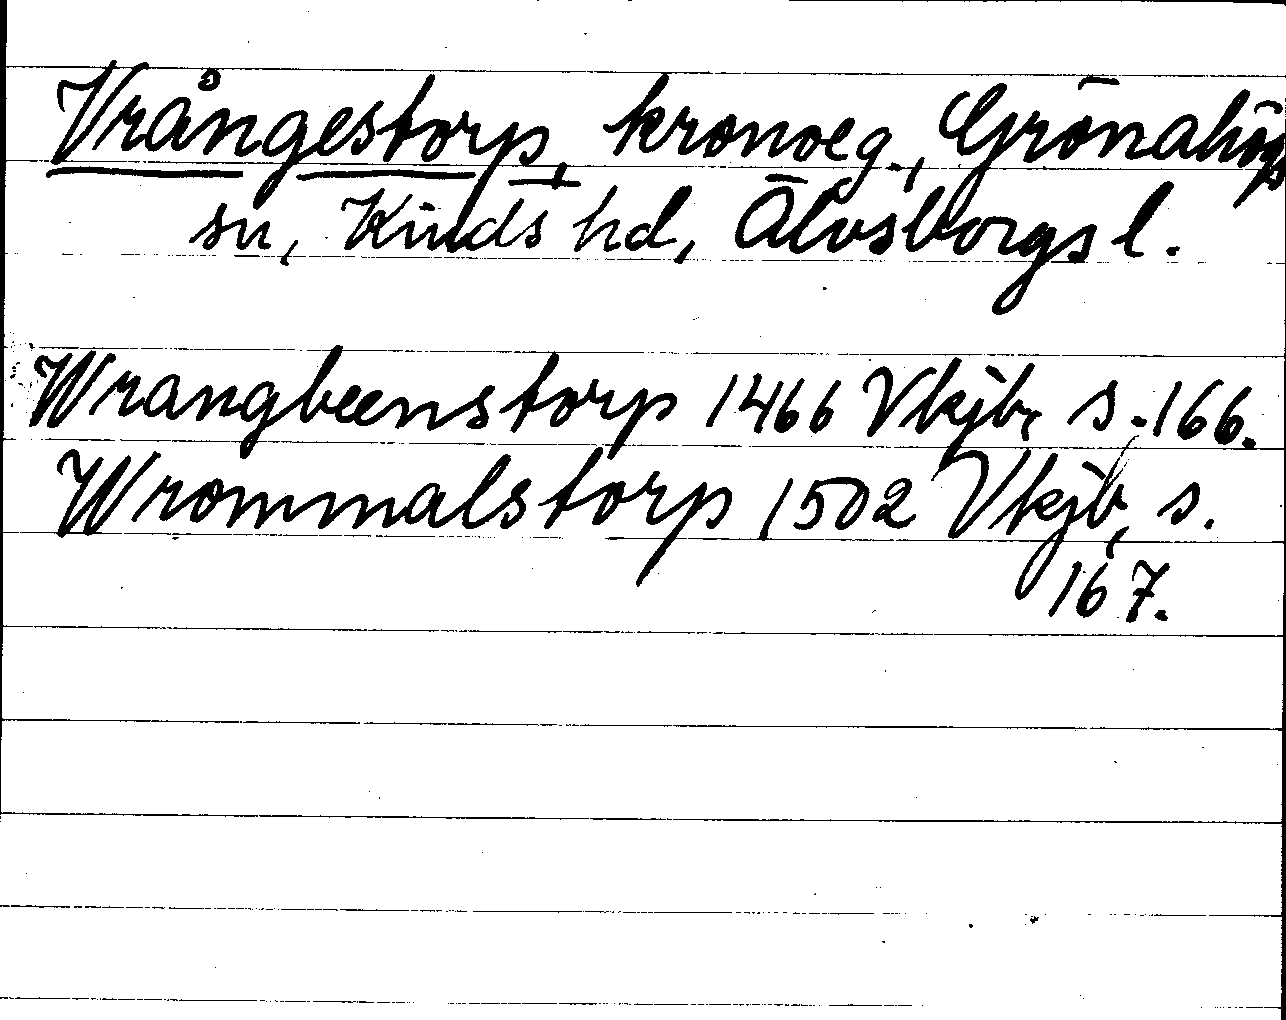 Vrångestorp, kronoeg., Grönahögs
sn, Kinds hd, Älvsborgs l.
Wrangbeenstorp 1466 Vkjb, s. 166.
Wrommalstorp 1502 Vkjb, s.
167.